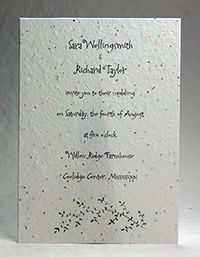 Sara Wellingsmith
&
Richard Taylor
invite you to their wedding
on Saturday, the fourth of August
at five o'clock
Willow Ridge Farmhouse
Coolidge Center, Mississippi